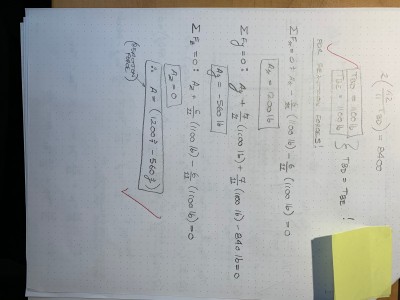 2 (12/11 TBD) = 2400
TBD = 1100 lb
TBE = 1100 lb } TBD = TBE !
FOR REACTION FORCES:
ΣFx = 0: Ax - 6/11 (1100 lb) - 6/11 (1100 lb) = 0
Ax = 1200 lb
ΣFy = 0: Ay + 7/11 (1100 lb) + 7/11 (1100 lb) - 840 lb = 0
Ay = -560 lb
ΣFz = 0: Az + 6/11 (1100 lb) - 6/11 (1100 lb) = 0
Az = 0
∴ A = (1200 î - 560 ĵ)
(REACTION FORCE)